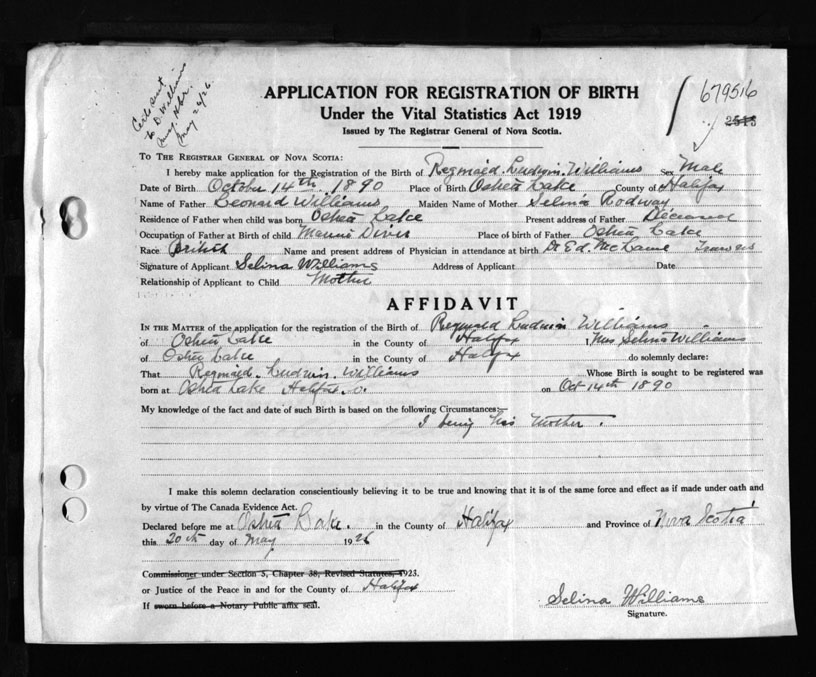 Cert sent
to D. Williams
May 26/26
APPLICATION FOR REGISTRATION OF BIRTH
Under the Vital Statistics Act 1919
Issued by The Registrar General of Nova Scotia.
679516
2513
TO THE REGISTRAR GENERAL OF NOVA SCOTIA:
I hereby make application for the Registration of the Birth of Reginald Ludwin Williams Sex Male
Date of Birth October 14th 1890 Place of Birth Oshea Lake County of Halifax
Name of Father Leonard Williams Maiden Name of Mother Selina Rodway
Residence of Father when child was born Oshea Lake Present address of Father Deceased
Occupation of Father at Birth of child Place of birth of Father Oshea Lake
Race British Name and present address of Physician in attendance at birth Dr Ed.
Signature of Applicant Selina Williams Address of Applicant Date
Relationship of Applicant to Child Mother
AFFIDAVIT
IN THE MATTER of the application for the registration of the Birth of Reginald Ludwin Williams
of Oshea Lake in the County of Halifax I Mrs Selina Williams
of Oshea Lake in the County of Halifax do solemnly declare:
That Reginald Ludwin Williams Whose Birth is sought to be registered was
born at Oshea Lake Halifax Co. on Oct 14th 1890
My knowledge of the fact and date of such Birth is based on the following Circumstances:—
I being his Mother.
I make this solemn declaration conscientiously believing it to be true and knowing that it is of the same force and effect as if made under oath and
by virtue of The Canada Evidence Act.
Declared before me at Oshea Lake. in the County of Halifax and Province of Nova Scotia
this 20th day of May 1926
Commissioner under Section 5, Chapter 38, Revised Statutes, 1923.
or Justice of the Peace in and for the County of Halifax
If sworn before a Notary Public affix seal.
Selina Williams
Signature.